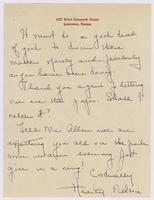 Lawrence, Kansas
It must do a good deal
of good to discuss these
matters openly and fearlessly
as you have been doing.
Thank you again for letting
me see the paper. Shall I
return it?
Tell Mrs. Allen we are
expecting you all on the
some evening. Just
give us a ring.
Cordially